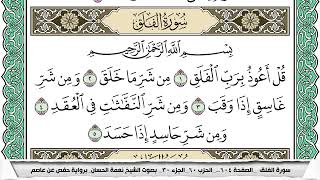 سُورَةُ الفَلَقِ
بِسْمِ اللَّهِ الرَّحْمَٰنِ الرَّحِيمِ
قُلْ أَعُوذُ بِرَبِّ الْفَلَقِ ١ مِن شَرِّ مَا خَلَقَ ٢ وَمِن شَرِّ
غَاسِقٍ إِذَا وَقَبَ ٣ وَمِن شَرِّ النَّفَّاثَاتِ فِي الْعُقَدِ ٤
وَمِن شَرِّ حَاسِدٍ إِذَا حَسَدَ ٥
سورة الفلق الصفحة ٦٠٤ الحزب ٦٠ الجزء ٣٠ بصوت الشيخ نعمة الحسان برواية حفص عن عاصم